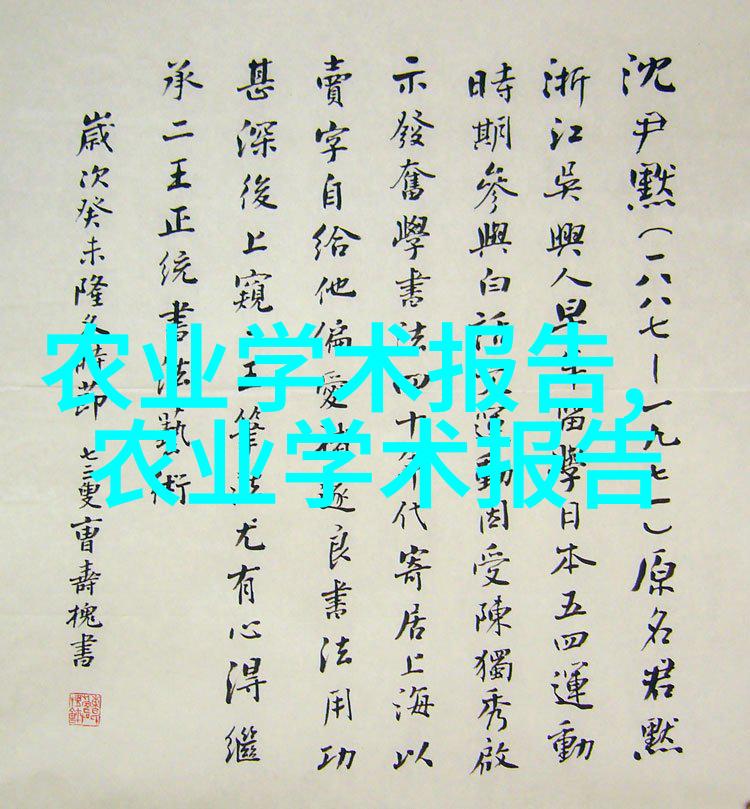 沈尹默（一八八七—一九七一）原名君默
浙江吳興人早年留學日本五四運動
時期參與白話文運動因受陳獨秀啟
示發奮學書法四十年代寄居上海以
賣字自給他偏愛褚遂良書法用功
甚深後上窺二王筆法尤有心得繼
承二王正统書法藝術
歲次癸未隆冬時節 七二叟曹壽槐書
农业学术报告,
农业学术报告